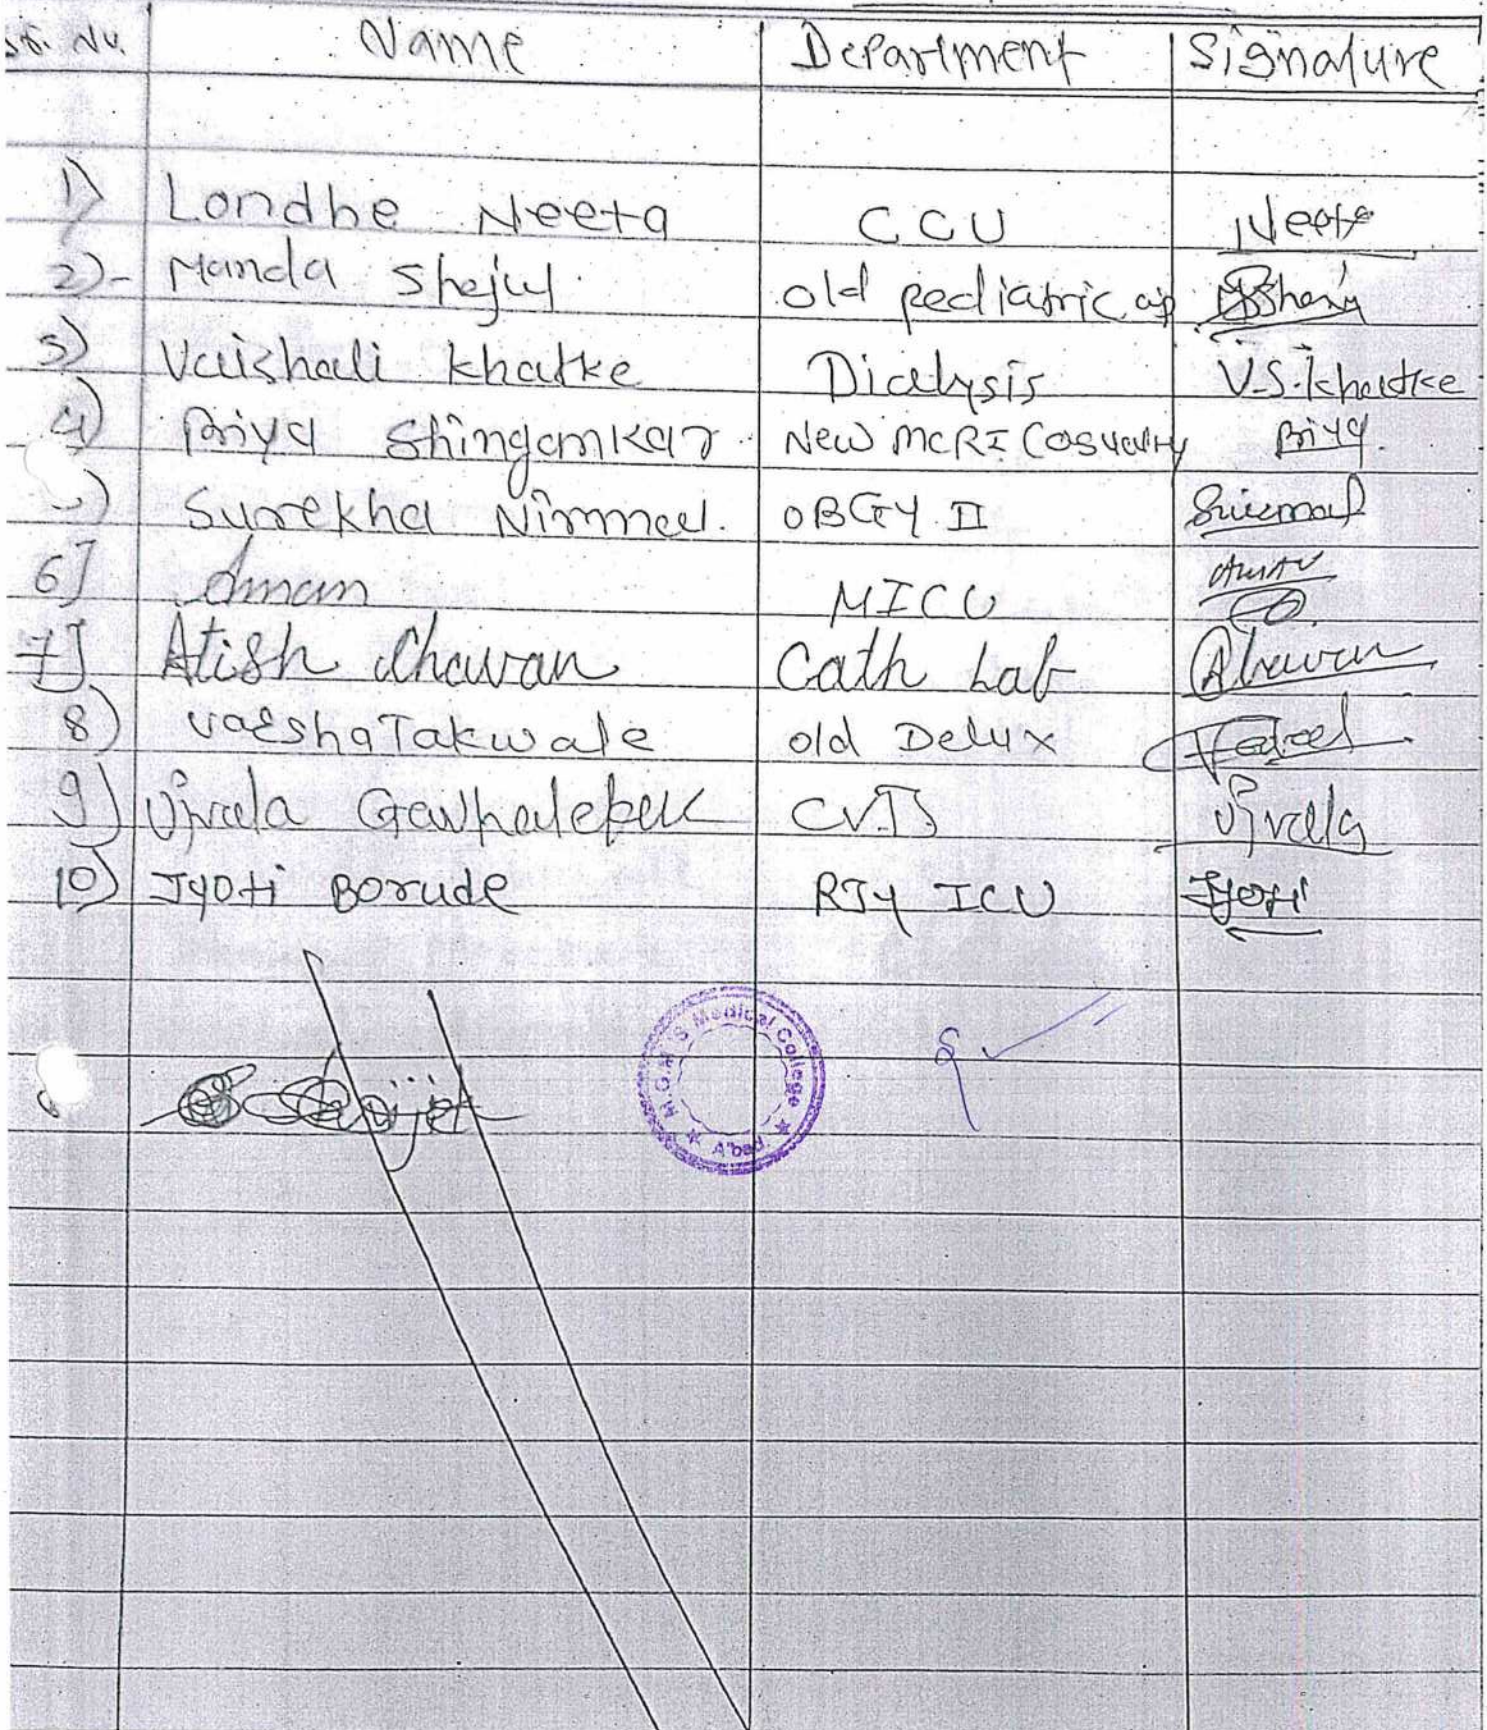 Sr. No. Name Department Signature
1) Londhe Neeta CCU Neeta
2)- Manda Shejul old pediatric
3) Vaishali Khatke Dialysis V.S.Khatke
4) Priya Shingamkar New MCRI Casualty Priya.
5) Surekha Nirmal. OBGY II
6] Aman MICU Aman
7] Atish Chavan Cath Lab AChavan
8) Varsha Takwale old Delux
9) Ujvala Gavhalekar CVTS Ujvala
10) Jyoti Borude RJY ICU Jyoti
M.G.M'S Medical College
A'bad.